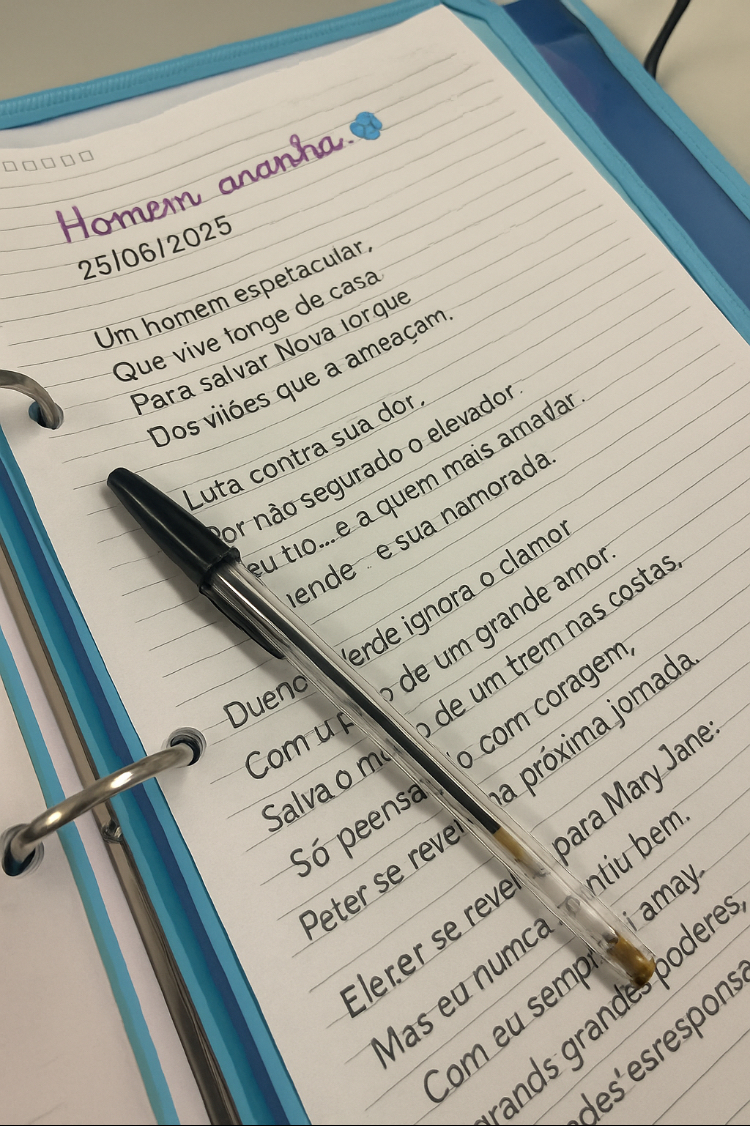 Homem ananha.
25/06/2025
Um homem espetacular,
Que vive tonge de casa
Para salvar Nova iorque
Dos viiões que a ameaçam.
Luta contra sua dor,
Por não segurado o elevador.
eu tio...e a quem mais
e sua namorada.
Duend erde ignora o clamor
Com u p o de um grande amor.
Salva o m o de um trem nas costas,
Só peensa o com coragem,
Peter se revel na próxima jornada.
se revel para Mary Jane:
Mas eu numca ntiu bem.
Com eu sempr i amay.
grands grandes poderes,
ades'esresponsa